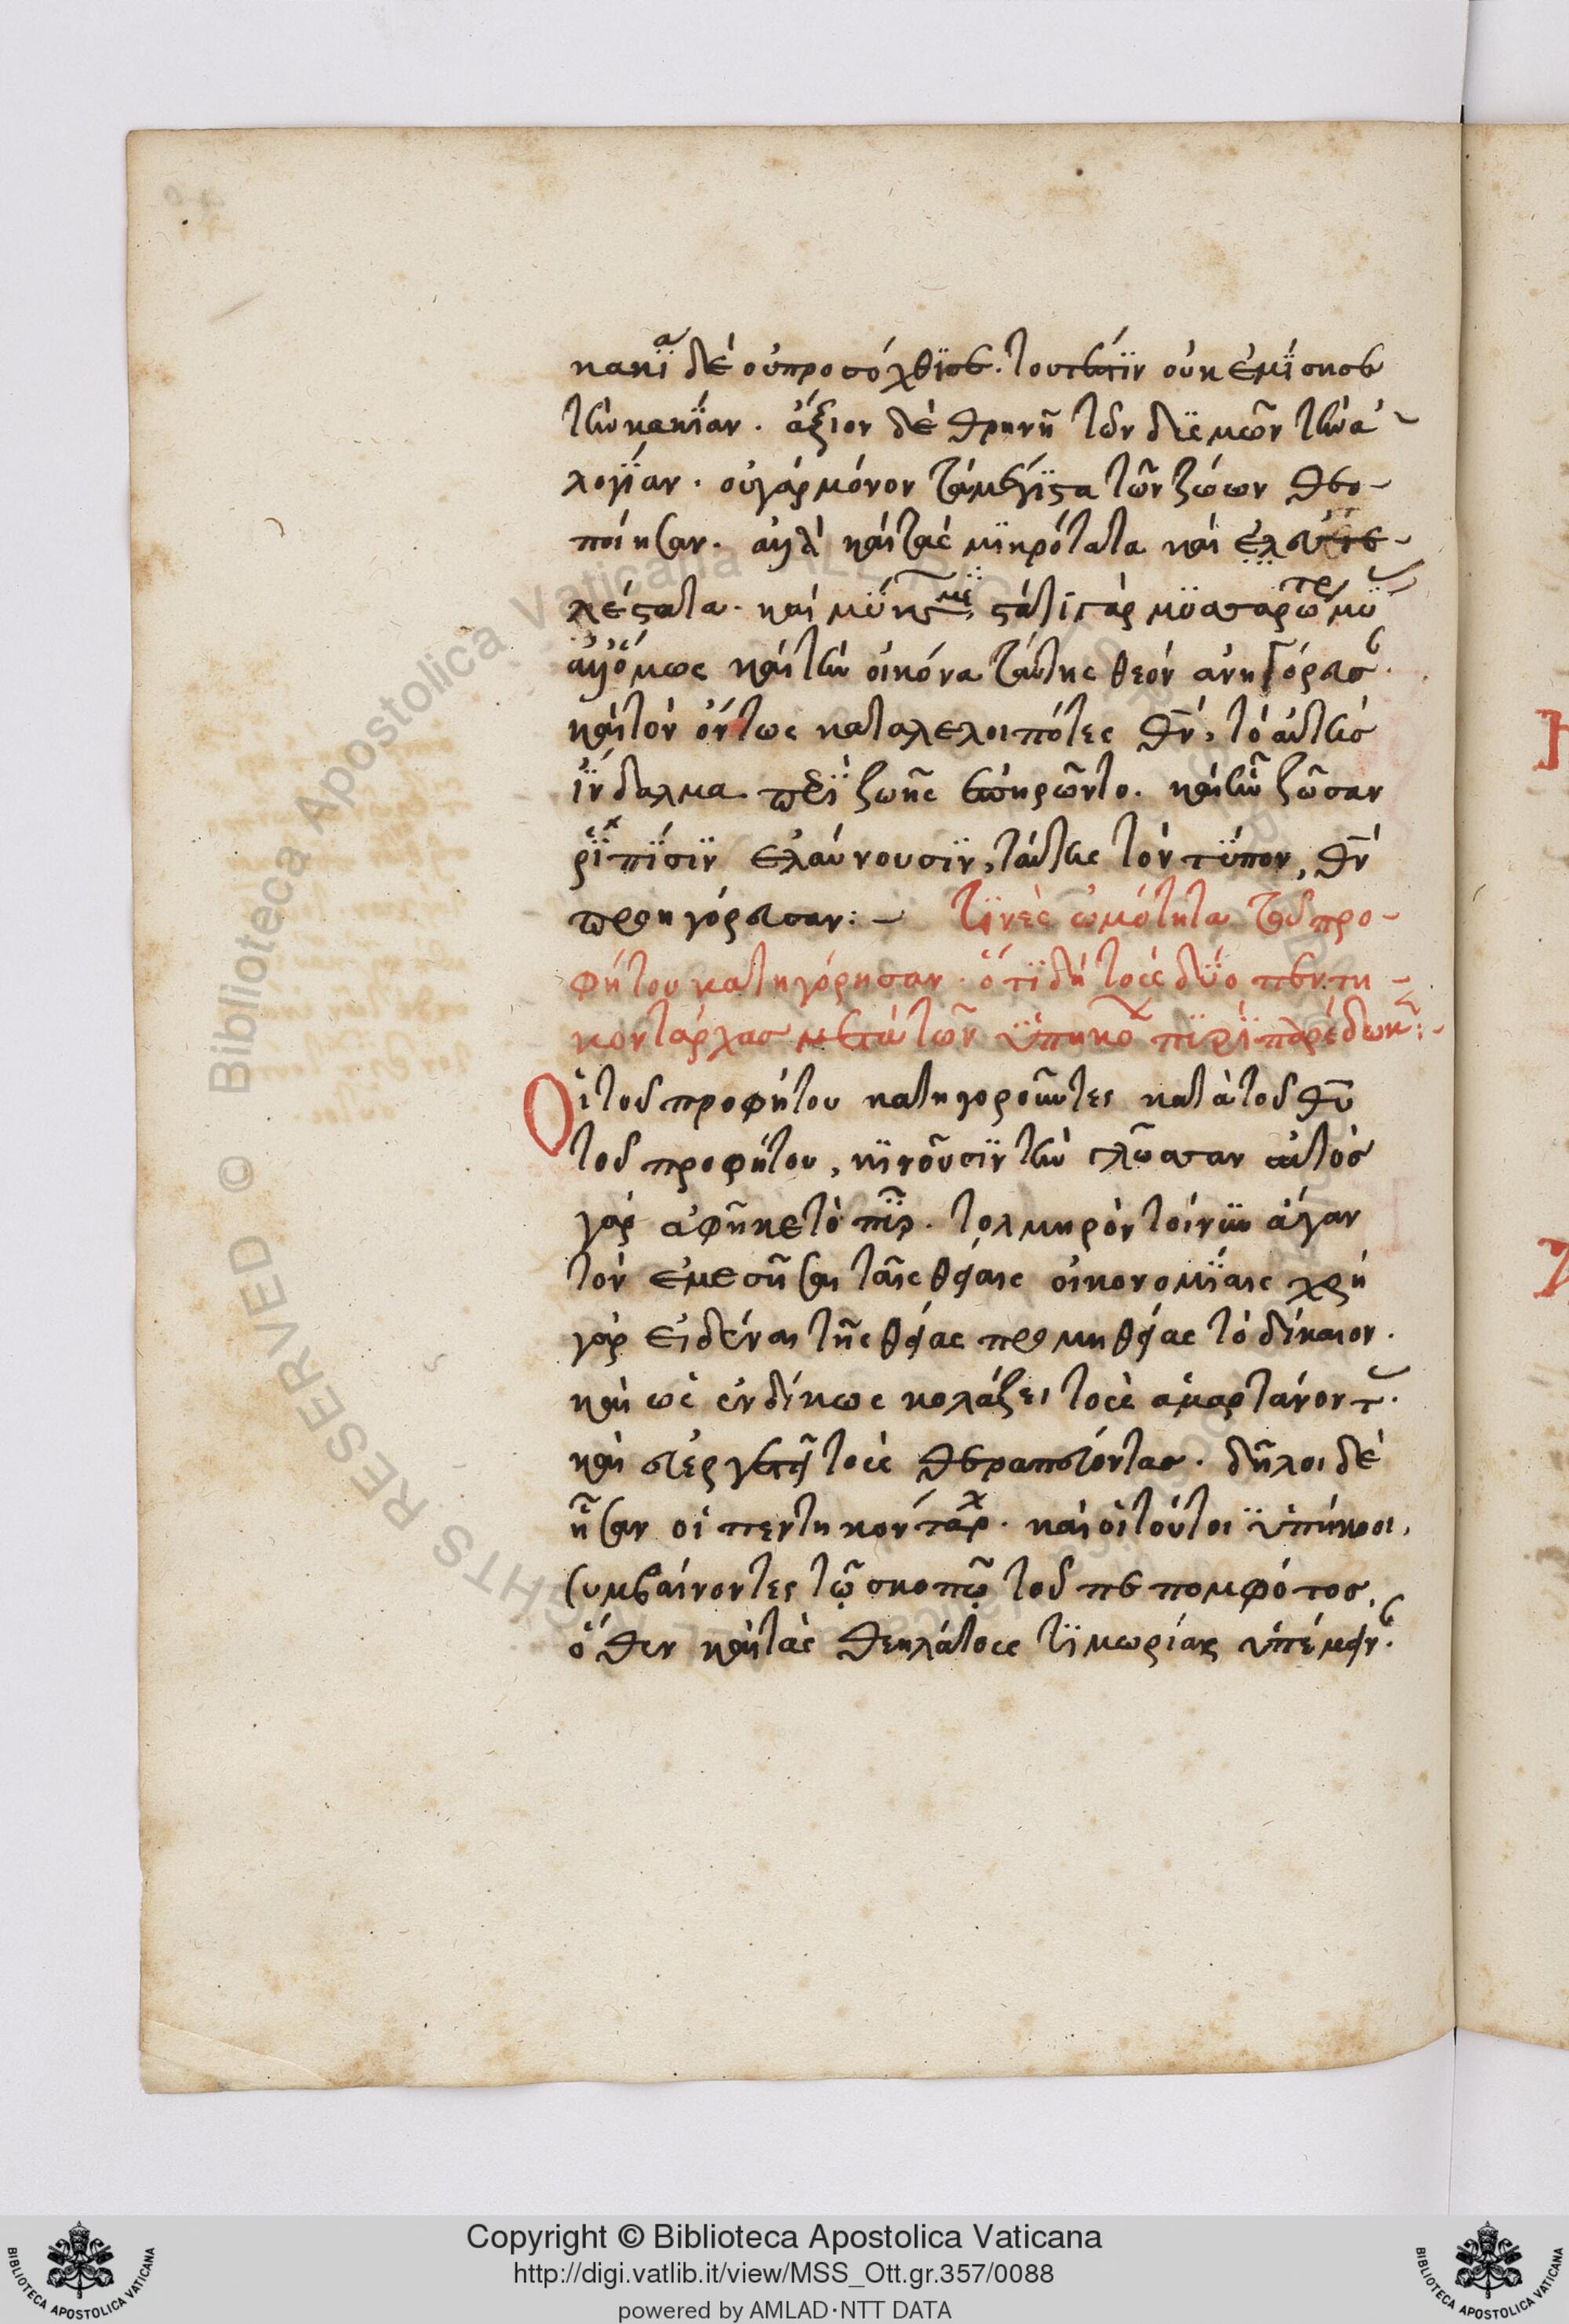 κακία δὲ οὐ προσώχθισε. τουτέστιν οὐκ ἐμίσησε
τὴν κακίαν. ἄξιον δὲ θρηνῆ τῶν δαιμων τὴν ἀ-
λογίαν. οὐ γὰρ μόνον τὰ μέγιστα τῶν ζώων θεο-
ποίησαν. ἀλλὰ καὶ τὰ μικρότατα καὶ
ἀλλ' ὅμως καὶ τὴν εἰκόνα ταύτης θεὸν ἀνηγόρευσ.
καὶ τὸν ὄντως καταλελοιπότες θν, τὸ αὐτῆς
ἴνδαλμα περὶ ζωῆς ἐπηρῶντο. καὶ ἣν ζῶσαν
ῥιπίσιν ἐλαύνουσιν, ταύτης τὸν τύπον, θν
προσηγόρευσαν:– τινὲς ὠμότητα τοῦ προ-
φήτου κατηγόρησαν. ὅτι δὴ τοὺς δύο πεντη-
κοντάρχας μετὰ τῶν ὑπηκό πυρὶ παρέδωκ:-
Οἱ τοῦ προφήτου κατηγοροῦντες κατὰ τοῦ θυ
τοῦ προφήτου, κινοῦσιν τὴν γλῶσσαν αὐτὸς
γὰρ ἀφῆκε τὸ πῦρ. τολμηρὸν τοίνυν ἄγαν
τὸν ἐμεσῆσαι ταῖς θείαις οἰκονομίαις χρὴ
γὰρ εἰδέναι τῆς θείας προμηθείας τὸ δίκαιον.
καὶ ὡς ἐνδίκως κολάζει τοὺς ἁμαρτάνοντ.
καὶ στέργειν τοὺς θεραπεύοντας. δῆλοι δὲ
ἦσαν οἱ πεντηκόνταρχ. καὶ οἱ τούτοι ὑπήκοοι,
συμβαίνοντες τῷ σκοπῷ τοῦ πεπομφότος.
ὅθεν καὶ τὰς θεηλάτους τιμωρίας ὑπέμειν.
Copyright © Biblioteca Apostolica Vaticana
http://digi.vatlib.it/view/MSS_Ott.gr.357/0088
powered by AMLAD·NTT DATA
BIBLIOTECA APOSTOLICA VATICANA
BIBLIOTECA APOSTOLICA VATICANA